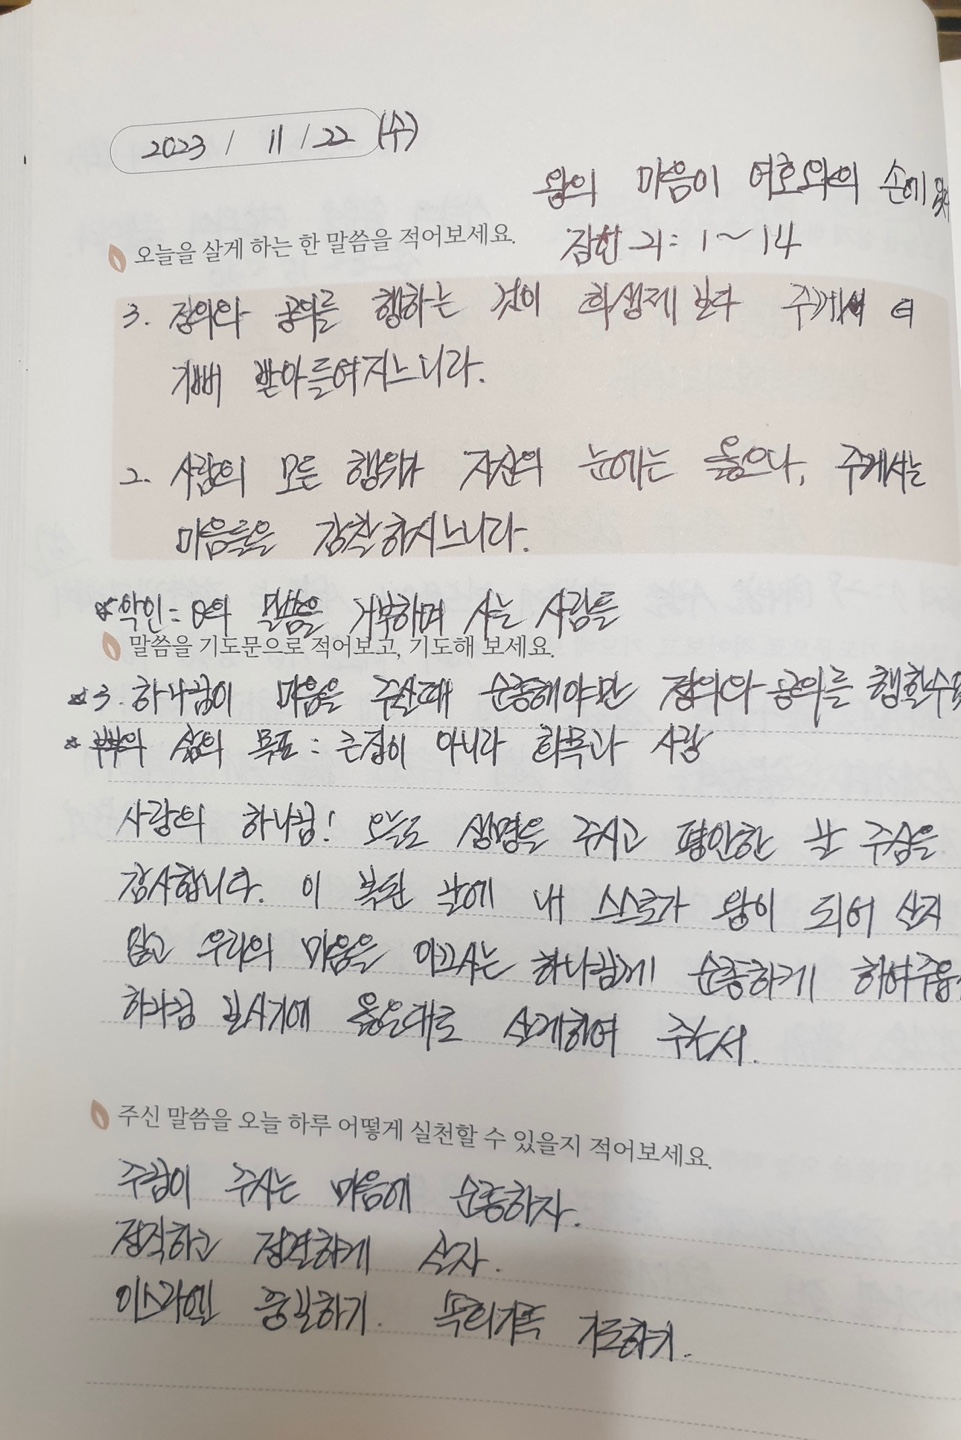 2023 / 11 / 22 (수)
왕의 마음이 여호와의 손에
잠언 21: 1~14
오늘을 살게 하는 한 말씀을 적어보세요.
3. 정의와 공의를 행하는 것이 희생제보다 주께서 더
기뻐 받아들여지느니라.
2. 사람의 모든 행위가 자신의 눈에는 옳으나, 주께서는
마음들을 감찰하시느니라.
*악인 = 의 말씀을 거부하며 사는 사람들
말씀을 기도문으로 적어보고, 기도해 보세요.
*3. 하나님이 마음을 주실때 순종해야만 정의와 공의를 행할수
* 부부의 삶의 목표 : 큰집이 아니라 화목과 사랑
사랑의 하나님! 오늘도 생명을 주시고 평안한 날 주심을
감사합니다. 이 복된 날에 내 스스로가 왕이 되어 살지
않고 우리의 마음을 아끄시는 하나님께 순종하게 하여주옵
하나님 보시기에 옳은대로 살게하여 주소서.
주신 말씀을 오늘 하루 어떻게 실천할 수 있을지 적어보세요.
주님이 주시는 마음에 순종하자.
정직하고 정결하게 살자.
이스라엘 중보하기. 목회가족 기도하기.